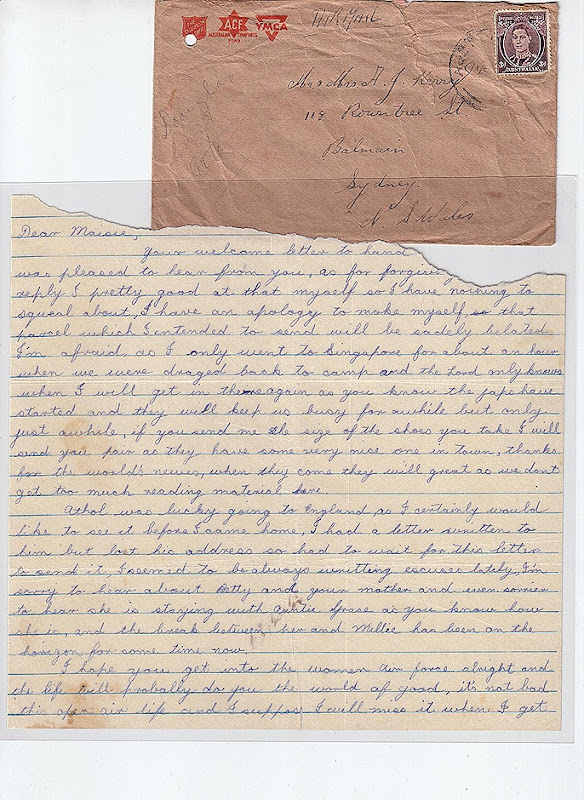 ACF
YMCA
AUSTRALIAN COMFORTS
FUND
AIR MAIL
AUSTRALIA
Mr & Mrs A. J. Kerry
119 Rowntree St.
Balmain
Sydney.
N. S Wales
Dear Maisie,
Your welcome letter to hand
was pleased to hear from you, as for
reply I pretty good at that myself so I have nothing to
squeal about, I have an apology to make myself, so that
parcel which I intended to send will be sadely belated
I'm afraid, as I only went to Singapore for about an hour
when we were draged back to camp and the Lord only knows
when I will get in there again as you know the japs have
started and they will keep us busy for awhile but only
just awhile, if you send me the size of the shoes you take I will
send you pair as they have some very nice one in town, thanks
for the world's news, when they come they will great as we don't
get too much reading material here.
Athol was lucky going to England, as I certainly would
like to see it before I came home, I had a letter written to
him but lost his address so had to wait for this letter
to send it, I seemed to be always writting escuses lately, I'm
sorry to hear about Betty and your mother and even sorrier
to hear she is staying with auntie Grace as you know how
she is, and the break between her and Millie has been on the
horizon for some time now.
I hope you get into the women air force alright and
the life will probally do you the world of good, it's not bad
this open air life and I suppos I will miss it when I get